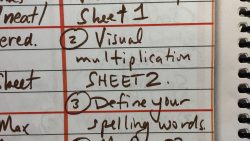 neat/ Sheet 1
ered. ② Visual
multiplication
heet SHEET 2.
③ Define your
Max spelling words.